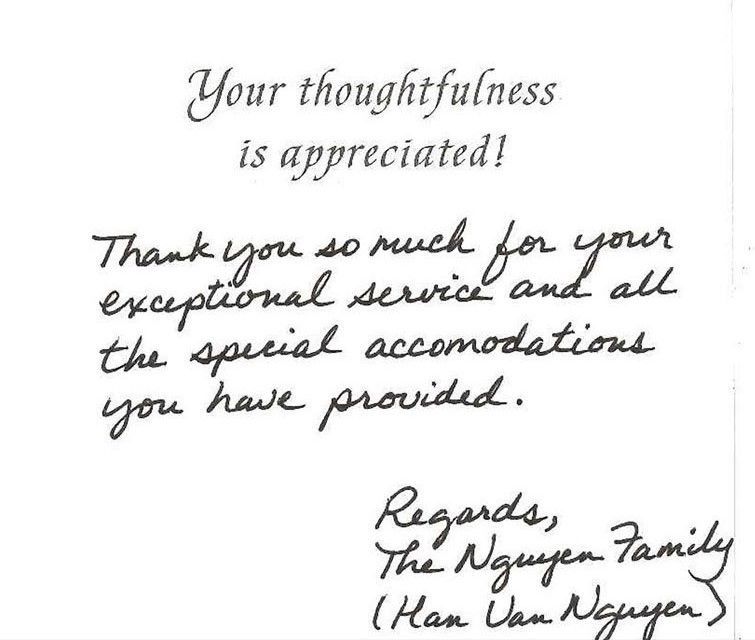 Your thoughtfulness
is appreciated!
Thank you so much for your
exceptional service and all
the special accomodations
you have provided.
Regards,
The Nguyen Family
(Han Van Nguyen)